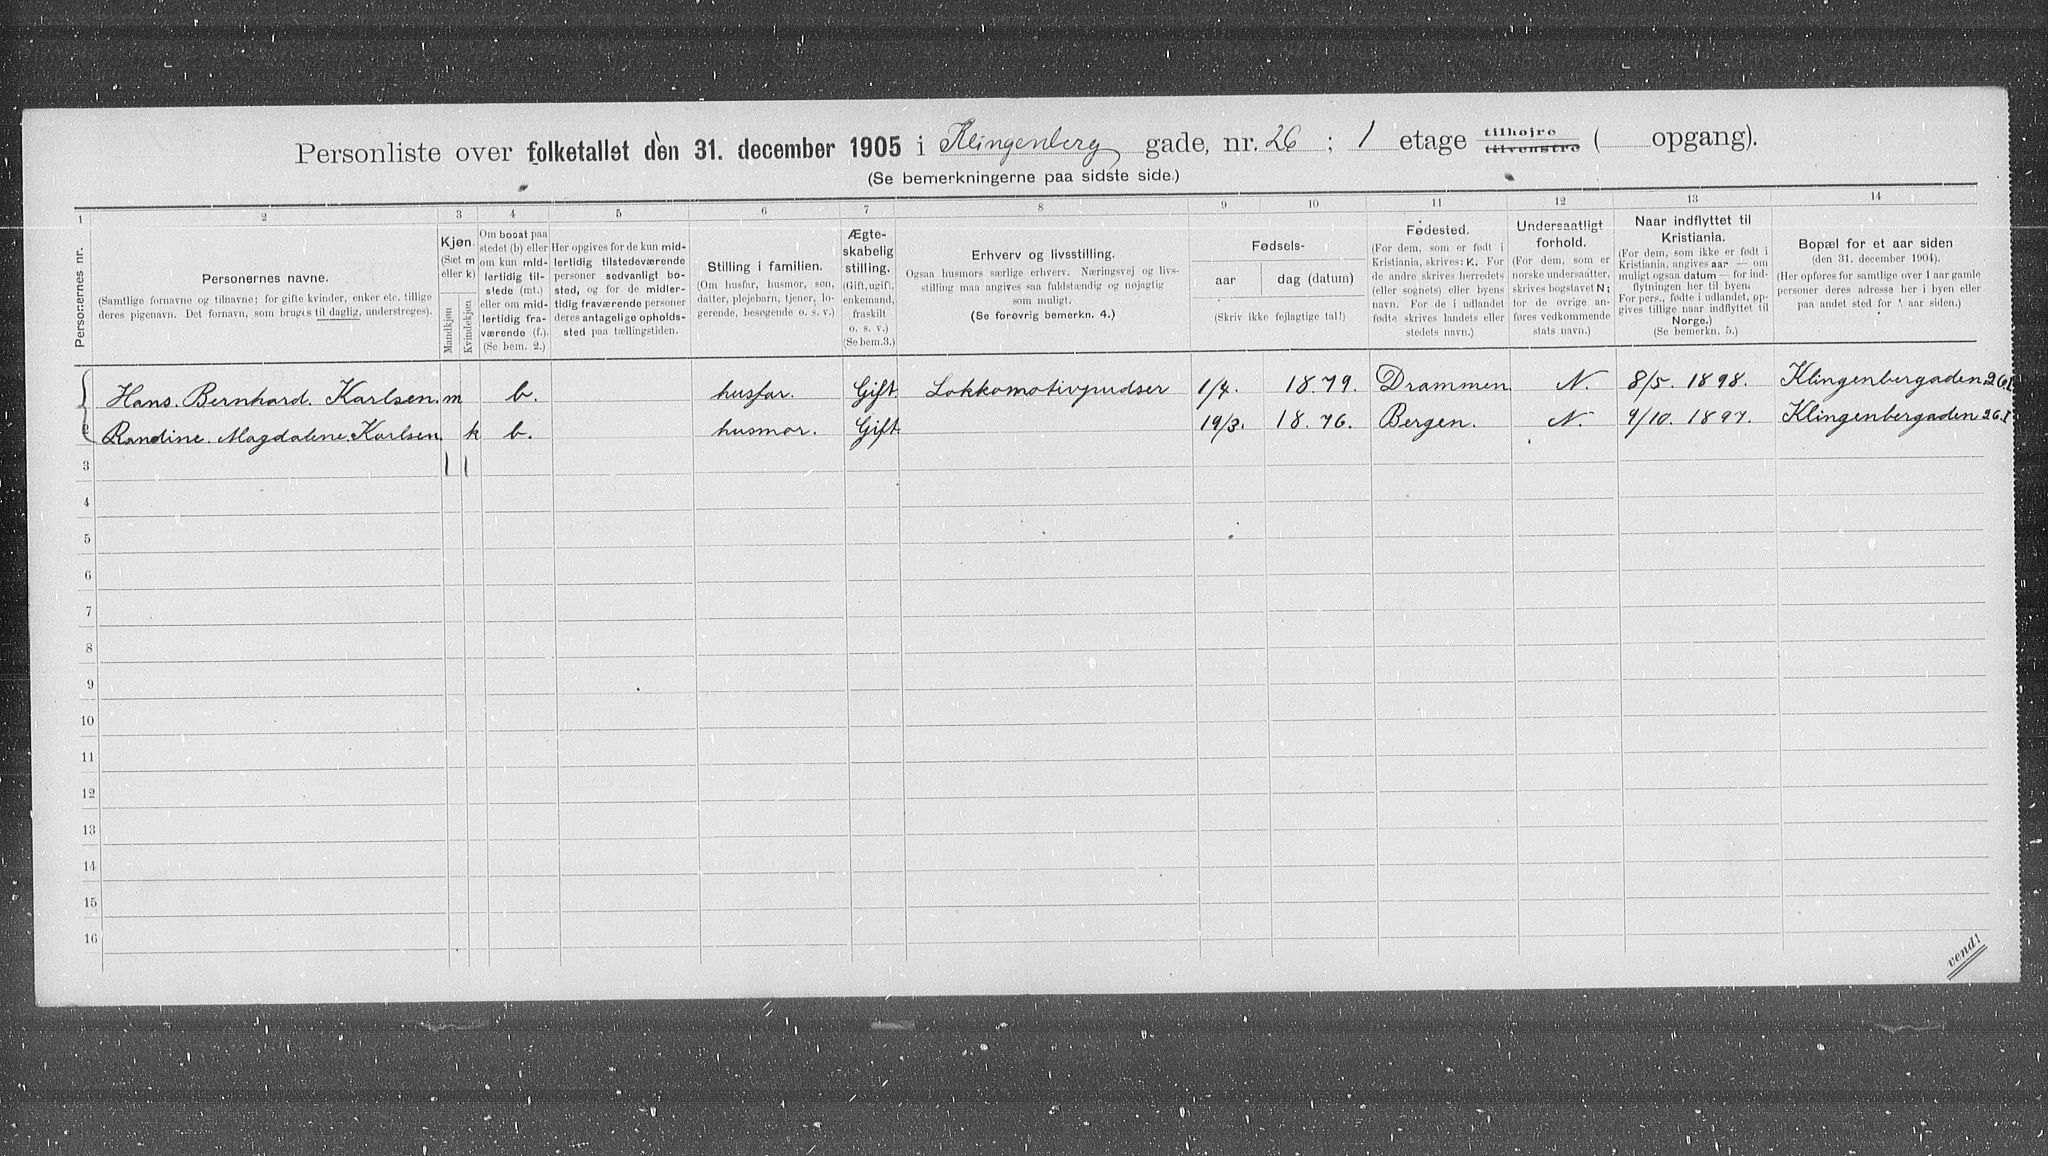 Personliste over folketallet den 31. december 1905 i Klingenberg gade, nr. 26 ; 1 etage tilhøjre tilvenstre ( opgang).
(Se bemerkningerne paa sidste side.)
1 2 3 4 5 6 7 8 9 10 11 12 13 14
Personernes nr.
Personernes navne.
(Samtlige fornavne og tilnavne; for gifte kvinder, enker etc. tillige
deres pigenavn. Det fornavn, som bruges til daglig, understreges).
Kjøn.
(Sæt m
eller k)
Mandkjøn
Kvindekjøn
Om bosat paa
stedet (b) eller
om kun mid-
lertidig til-
stede (mt.)
eller om mid-
lertidig fra-
værende (f.).
(Se bem. 2.)
Her opgives for de kun mid-
lertidig tilstedeværende
personer sedvanligt bo-
sted, og for de midler-
tidig fraværende personer
deres antagelige opholds-
sted paa tællingstiden.
Stilling i familien.
(Om husfar, husmor, søn,
datter, plejebarn, tjener, lo-
gerende, besøgende o. s. v.)
Ægte-
skabelig
stilling.
(Gift, ugift,
enkemand,
fraskilt
o. s. v.)
(Se bem.3.)
Erhverv og livsstilling.
Ogsaa husmors særlige erhverv. Næringsvej og livs-
stilling maa angives saa fuldstændig og nøjagtig
som muligt.
(Se forøvrig bemerkn. 4.)
Fødsels-
aar dag (datum)
(Skriv ikke fejlagtige tal!)
Fødested.
(For dem, som er født i
Kristiania, skrives: K. For
de andre skrives herredets
(eller sognets) eller byens
navn. For de i udlandet
fødte skrives landets eller
stedets navn.)
Undersaatligt
forhold.
(For dem, som er
norske undersaatter,
skrives bogstavet N;
for de øvrige an-
føres vedkommende
stats navn.)
Naar indflyttet til
Kristiania.
(For dem, som ikke er født i
Kristiania, angives aar — om
muligt ogsaa datum — for ind-
flytningen her til byen.
For pers., fødte i udlandet, op-
gives tillige naar indflyttet til
Norge.)
(Se bemerkn. 5.)
Bopæl for et aar siden
(den 31. december 1904).
(Her opføres for samtlige over 1 aar gamle
personer deres adresse her i byen eller
paa andet sted for 1 aar siden.)
1 Hans. Bernhard. Karlsen. m b. husfar. Gift. Lokkomotivpudser 1/4. 1879. Drammen N. 8/5. 1898. Klingenberggaden 26 I
2 Randine. Magdalene. Karlsen. k b. husmor. Gift. 19/3. 18.76. Bergen. N. 9/10. 1897. Klingenberggaden 26. I
3 1 1
4
5
6
7
8
9
10
11
12
13
14
15
16
vend!